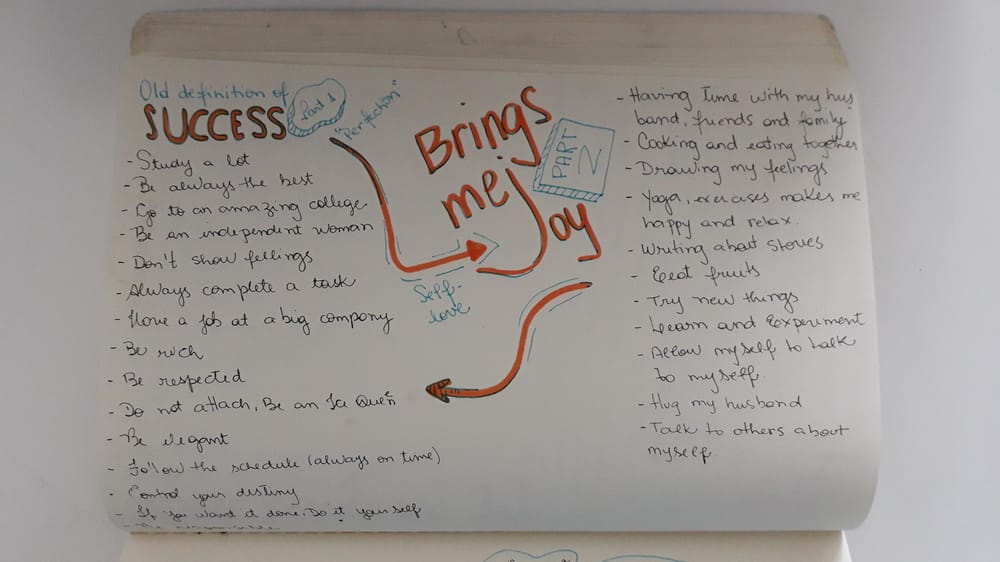 Old definition of
SUCCESS
Part 1
"Perfection"
- Study a lot
- Be always the best
- Go to an amazing college
- Be an independent woman
- Don't show fellings
- Always complete a task
- Have a job at a big company
- Be rich
- Be respected
- Do not attach, Be an Ice Queen
- Be elegant
- Follow the schedule (always on time)
- Control your destiny
- If you want it done. Do it yourself
Self-
love
Brings
me
Joy
PART
2
- Having time with my hus
band, friends and family
- Cooking and eating together
- Drawing my feelings
- Yoga, exercises makes me
happy and relax.
- Writing about stories
- Eeat fruits
- Try new things
- Learn and Experiment
- Allow myself to talk
to myself.
- Hug my husband
- Talk to others about
myself.